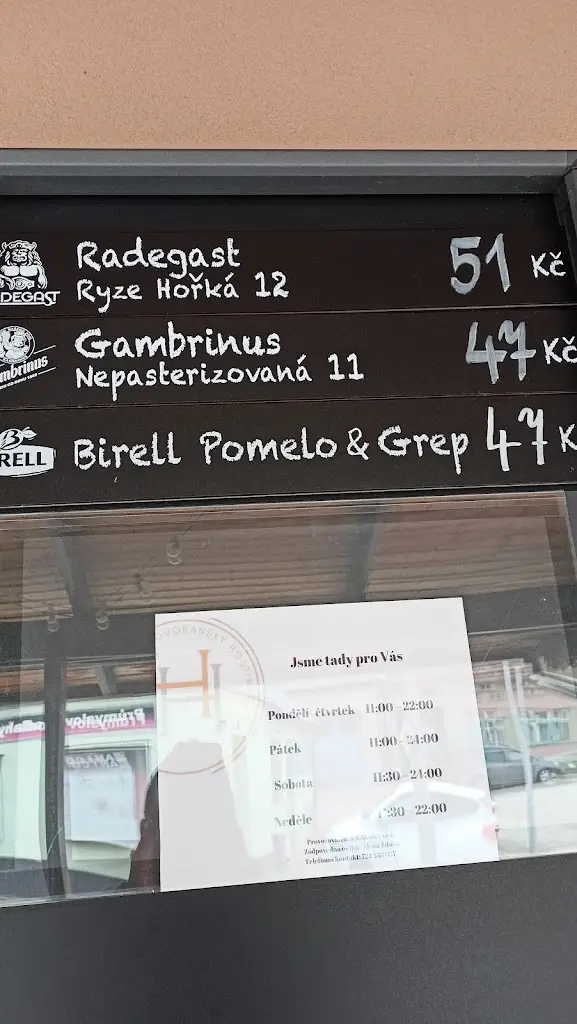 Radegast
Ryze Hořká 12 51 Kč
DEGAST
Gambrinus
Nepasterizovaná 11 47 Kč
mbrinus
Birell Pomelo & Grep 47 K
RELL
Jsme tady pro Vás
Pondělí- čtvrtek 11:00 - 22:00
Pátek 11:00 - 24:00
Sobota 11:30 - 24:00
Neděle :30 - 22:00
Telefonní kontakt: